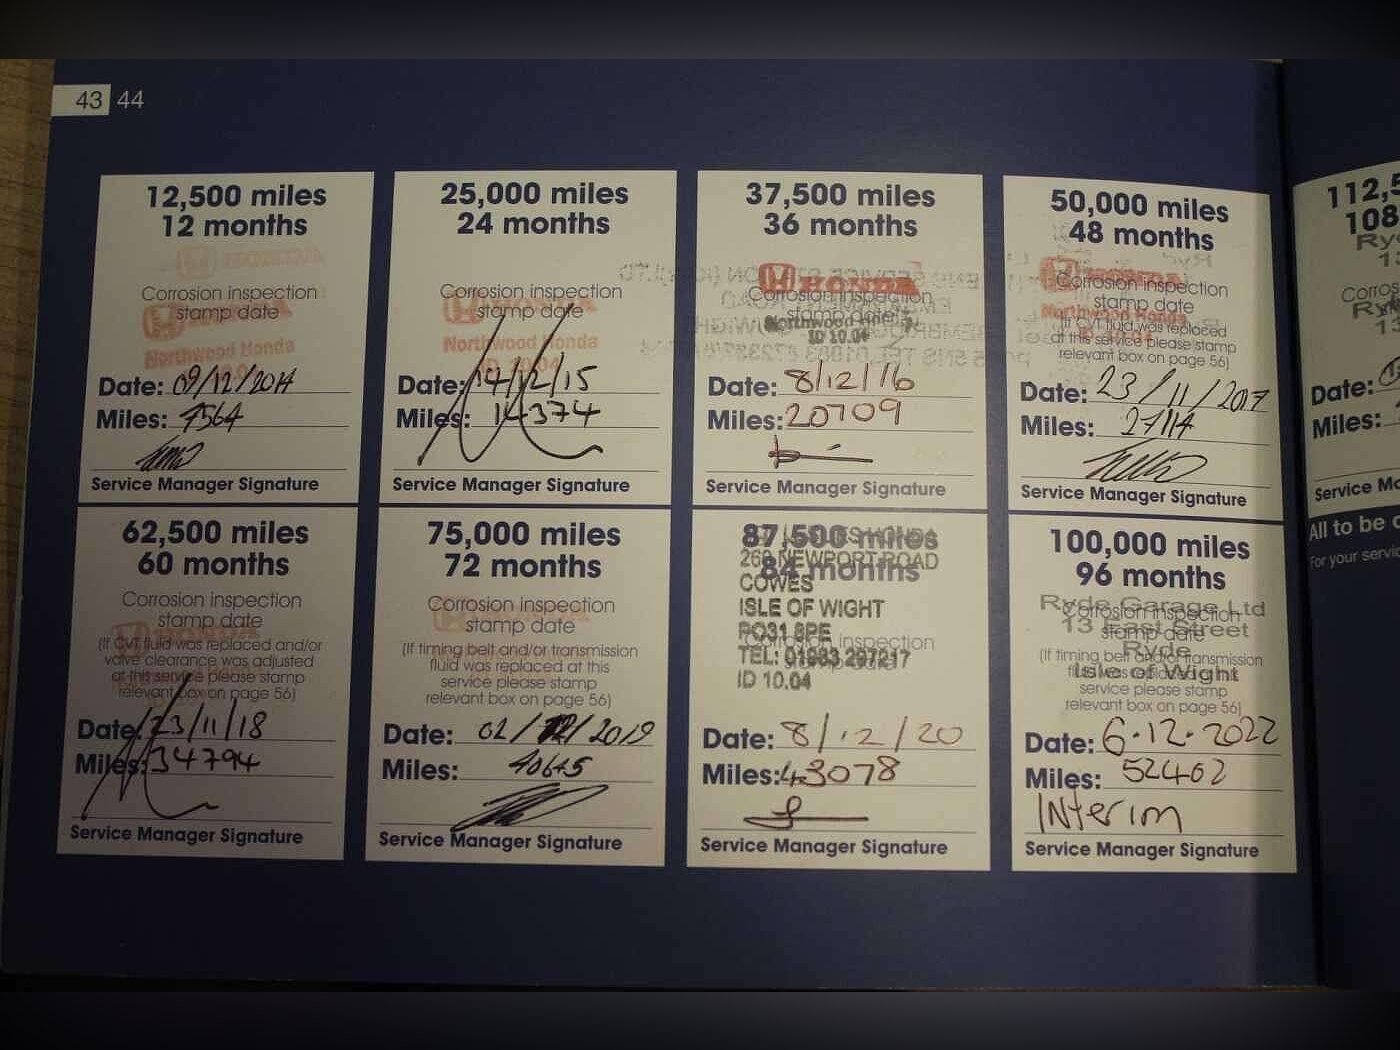 43 44
12,500 miles
12 months
HONDA
Corrosion inspection
stamp date
HONDA
Northwood Honda
10.04
Date: 09/12/2014
Miles: 7564
Service Manager Signature
25,000 miles
24 months
Corrosion inspection
stamp date
HONDA
Northwood Honda
ID 10.04
Date: 14/12/15
Miles: 14374
Service Manager Signature
37,500 miles
36 months
HONDA
Corrosion inspection
stamp date
Northwood
ID 10.04
Date: 8/12/16
Miles: 20709
Service Manager Signature
50,000 miles
48 months
HONDA
Corrosion inspection
stamp date
Northwood Honda
(If CVT fluid was replaced
at this service please stamp
relevant box on page 56)
Date: 23/11/2017
Miles: 27114
Service Manager Signature
62,500 miles
60 months
Corrosion inspection
stamp date
HONDA
(If CVT fluid was replaced and/or
valve clearance was adjusted
at this service please stamp
relevant box on page 56)
Date: 23/11/18
Miles: 34794
Service Manager Signature
75,000 miles
72 months
Corrosion inspection
stamp date
(If timing belt and/or transmission
fluid was replaced at this
service please stamp
relevant box on page 56)
Date: 02/12/2019
Miles: 40645
Service Manager Signature
87,500 miles
84 months
HONDA
269 NEWPORT ROAD
COWES
ISLE OF WIGHT
PO31 8PE
Corrosion inspection
TEL: 01983 297217
ID 10.04
Date: 8/12/20
Miles: 43078
Service Manager Signature
100,000 miles
96 months
Ryde Garage Ltd
Corrosion inspection
13 East Street
stamp date
Ryde
(If timing belt and/or transmission
Isle of Wight
service please stamp
relevant box on page 56)
Date: 6.12.2022
Miles: 52402
Interim
Service Manager Signature
112,5
108
Ryde
13
Corros
Ryde
1
Date:
Miles:
Service Ma
All to be
For your servic